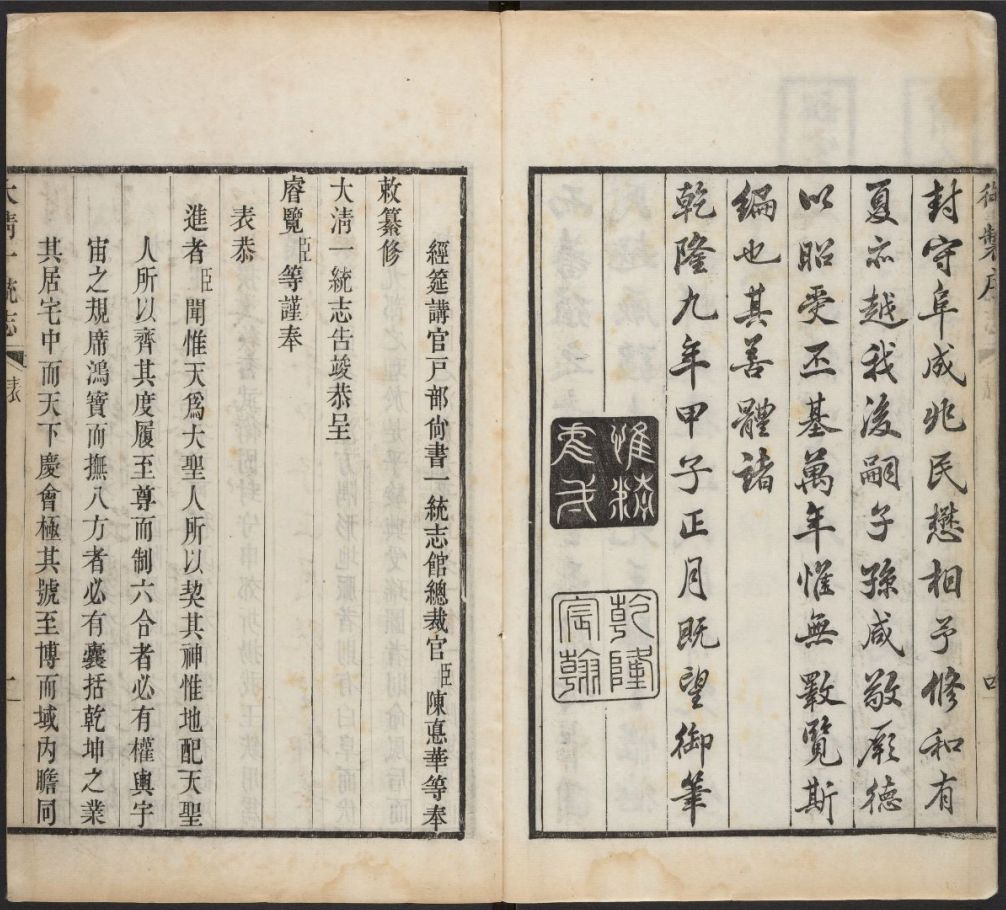 御製序
四
封守阜成兆民懋相予修和有
夏亦越我後嗣子孫咸敬厥德
以昭受丕基萬年惟無斁覽斯
編也其善體諸
乾隆九年甲子正月既望御筆
惟精
乾隆
宸翰
經筵講官戶部尚書一統志館總裁官臣陳悳華等奉
敕纂修
大淸一統志告竣恭呈
睿覽臣等謹奉
表恭
進者臣聞惟天爲大聖人所以契其神惟地配天聖
人所以齊其度履至尊而制六合者必有權輿宇
宙之規席鴻寶而撫八方者必有囊括乾坤之業
其居宅中而天下慶會極其號至博而域内瞻同
大淸一統志
表
一